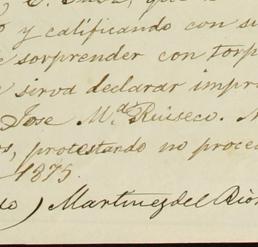 y calificando con su
sorprender con torp
sirva declarar impr
Jose Mª Ruiseco.
protestando no proce
1875.
) Martinez del Rio